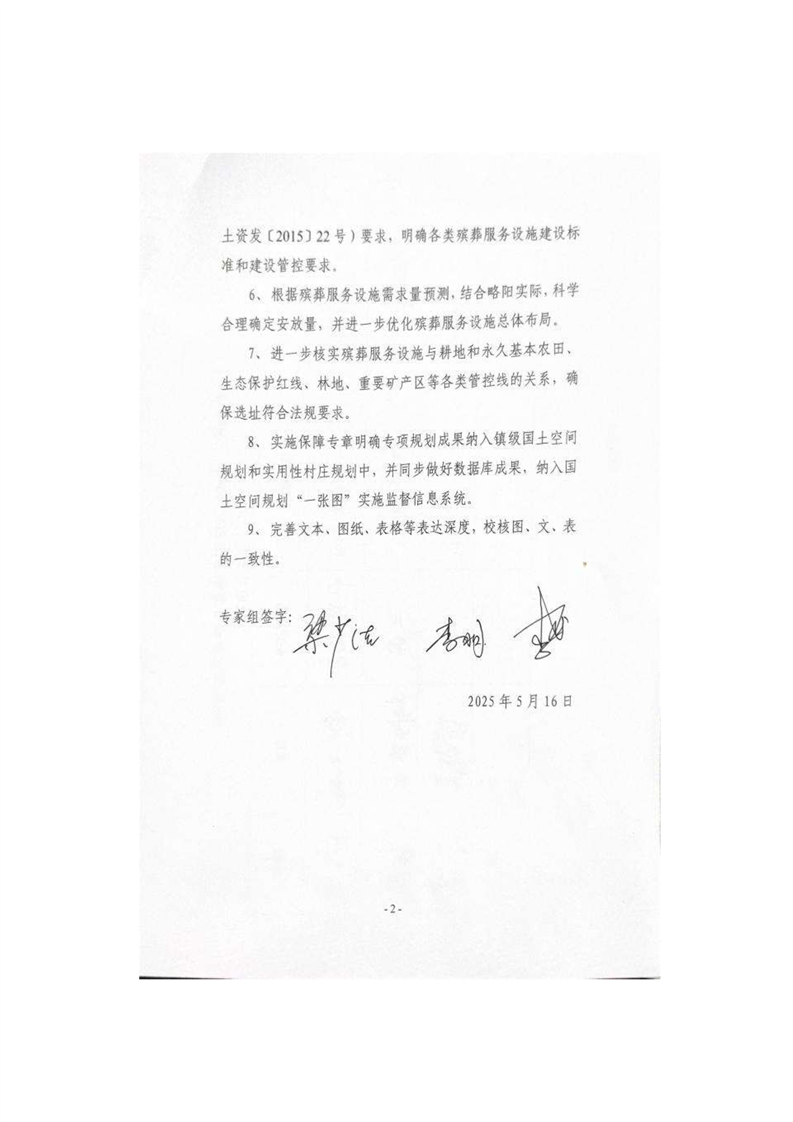 土资发〔2015〕22号）要求，明确各类殡葬服务设施建设标
准和建设管控要求。
6、根据殡葬服务设施需求量预测，结合略阳实际，科学
合理确定安放量，并进一步优化殡葬服务设施总体布局。
7、进一步核实殡葬服务设施与耕地和永久基本农田、
生态保护红线、林地、重要矿产区等各类管控线的关系，确
保选址符合法规要求。
8、实施保障专章明确专项规划成果纳入镇级国土空间
规划和实用性村庄规划中，并同步做好数据库成果，纳入国
土空间规划“一张图”实施监督信息系统。
9、完善文本、图纸、表格等表达深度，校核图、文、表
的一致性。
专家组签字：
2025年5月16日
-2-